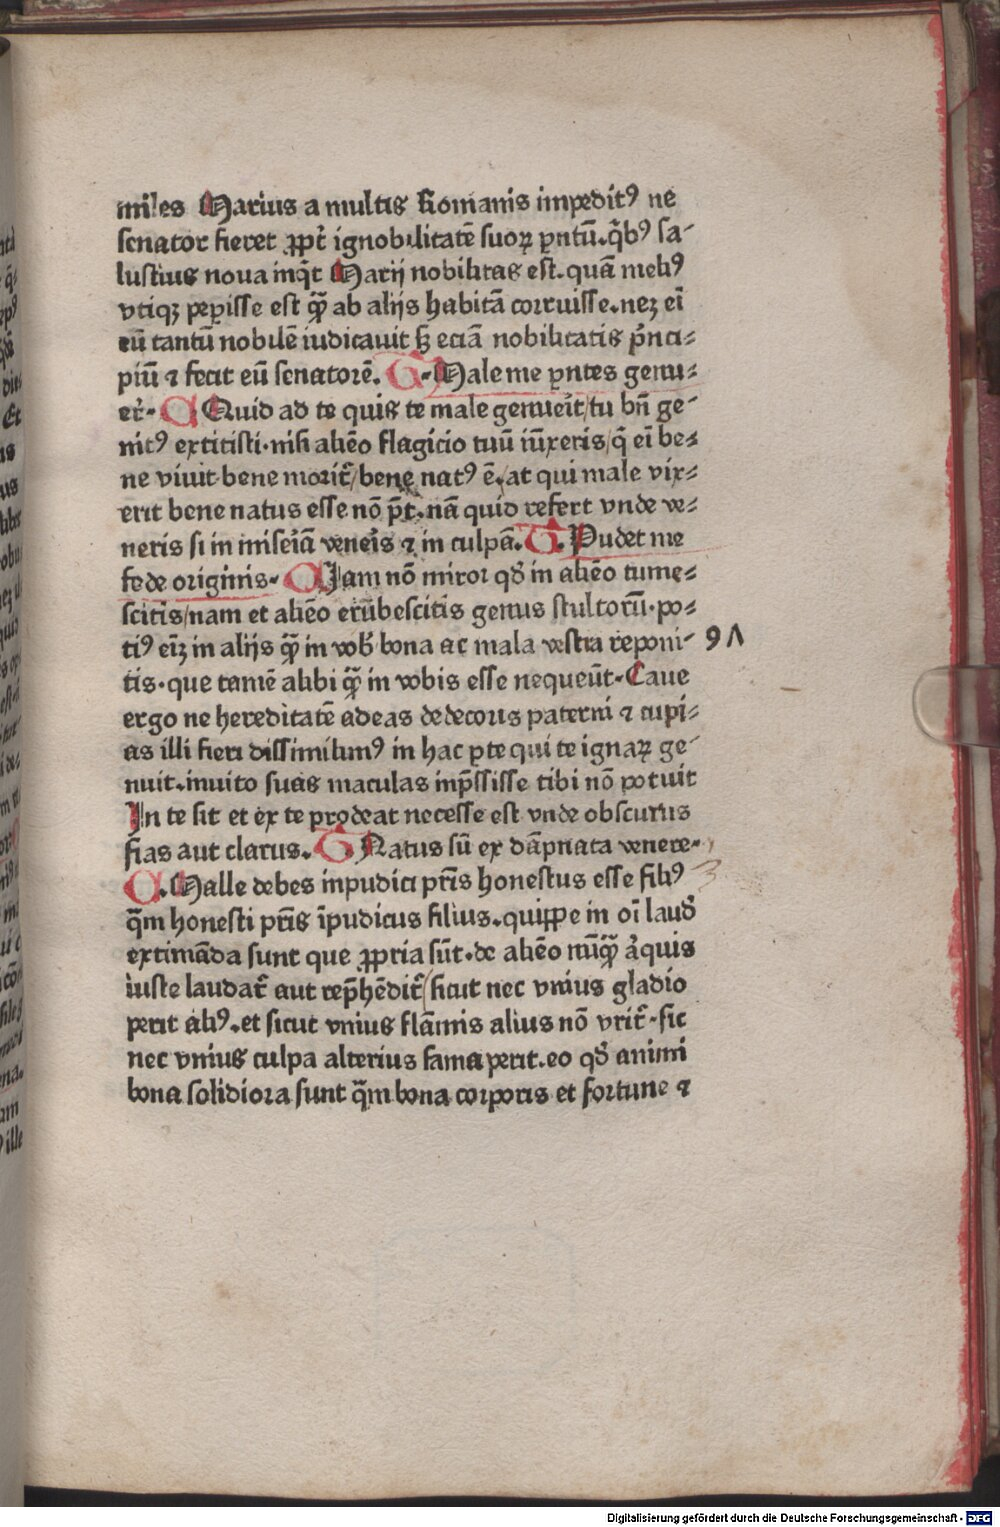 miles Marius a multis Romanis impeditꝰ ne
senator fieret ꝓpt̄ ignobilitatē suoꝝ pn̄tū. q̄bꝰ sa-
lustius noua inq̄t Marij nobilitas est. quā meliꝰ
vtiqꝫ peꝑisse est qͣꝫ ab alijs habitā corruisse. neꝫ eī
eū tantū nobilē iudicauit sꝫ eciā nobilitatis pͥnci-
piū ⁊ fecit eū senatorē. G. Male me pn̄tes genu-
er̄t. C Quid ad te quis te male genueīt/tu bn̄ ge-
nitꝰ extitisti. nisi aliēo flagicio tuū iūxeris/q̄ eī be-
ne viuit bene morit᷑/bene natꝰ ē. at qui male vix-
erit bene natus esse nō pt̄. nā quid refert vnde ve-
neris si in miseīā veneīs ⁊ in culpā. G. Pudet me
fede originis. C Jam nō miror qd̄ in aliēo tume-
scitis/nam et aliēo erūbescitis genus stultorū. po-
tiꝰ eīꝫ in alijs qͣꝫ in vob̄ bona ac mala vestra reponi-
tis. que tamē alibi qͣꝫ in vobis esse nequeūt. Caue
ergo ne hereditatē adeas dedecoris paterni ⁊ cupi-
as illi fieri dissimilimꝰ in hac ꝑte qui te ignaꝝ ge-
nuit. inuito suas maculas inp̄ssisse tibi nō potuit
In te sit et ex te prodeat necesse est vnde obscurus
fias aut clarus. G. Natus sū ex dāpnata venere.
C. Malle debes inpudici pr̄is honestus esse filiꝰ
qͣm honesti pr̄is īpudicus filius. quippe in oī laud̄
extimāda sunt que ꝓpria sūt. de aliēo nūqͣꝫ aͥquis
iuste laudat᷑ aut rep̄hēdit᷑/sicut nec vnius gladio
perit aliꝰ. et sicut vnius flāmis alius nō vrit᷑. sic
nec vnius culpa alterius fama perit. eo qd̄ animi
bona solidiora sunt qͣm bona corporis et fortune ⁊
Digitalisierung gefördert durch die Deutsche Forschungsgemeinschaft - DFG